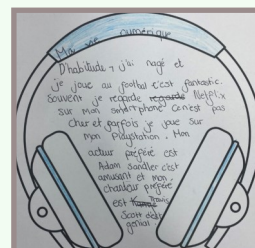 Ma vie numérique
D'habitude, j'ai nagé et
je joue au football c'est fantastic.
Souvent je regarde regarde Netflix
sur mon smartphone Cen'est pas
cher et parfois je joue sur
mon Playstation. Mon
acteur préféré est
Adam Sandler c'est
amusant et mon
chanteur préféré
est Travis
Scott c'est
genial